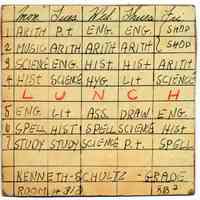 Mon Tues Wed. Thurs Fri
1 ARITH P.t. ENG. ENG. SHOP
2 MUSIC ARITH ARITH ARITH SHOP
3 SCIENCE ENG. HIST HIST ARITH
4 HIST SCIENCE HYG. LIT SCIENCE
LUNCH
5 ENG. LIT ASS. DRAW. ENG.
6 SPELL HIST SPELL SCIENCE HIST
7 STUDY STUDY SCIENCE P.t. SPELL
KENNETH-SCHULTZ - GRADE
ROOM # 313